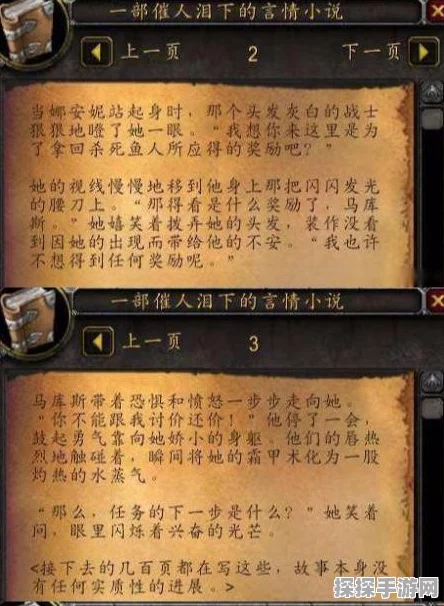 一部催人泪下的言情小说
上一页
2
下一页
当娜安妮站起身时，那个头发灰白的战士
狠狠地瞪了她一眼。“我想你来这里是为
了拿回杀死鱼人所应得的奖励吧？”
她的视线慢慢地移到他身上那把闪闪发光
的腰刀上。“那得看是什么奖励了，马库
斯。”她嬉笑着拨弄她的头发，装作没看
到因她的出现而带给他的不安。“我也许
不想得到任何奖励呢。”
一部催人泪下的言情小说
上一页
3
马库斯带着恐惧和愤怒一步步走向她。
“你不能跟我讨价还价！”他停了一会，
鼓起勇气靠向她娇小的身躯。他们的唇热
烈地触碰着，瞬间将她的霜甲术化为一股
灼热的水蒸气。
“那么，任务的下一步是什么？”她笑着
问，眼里闪烁着兴奋的光芒。
<接下去的几百页都在写这些，故事本身没
有任何实质性的进展。>
探探手游网